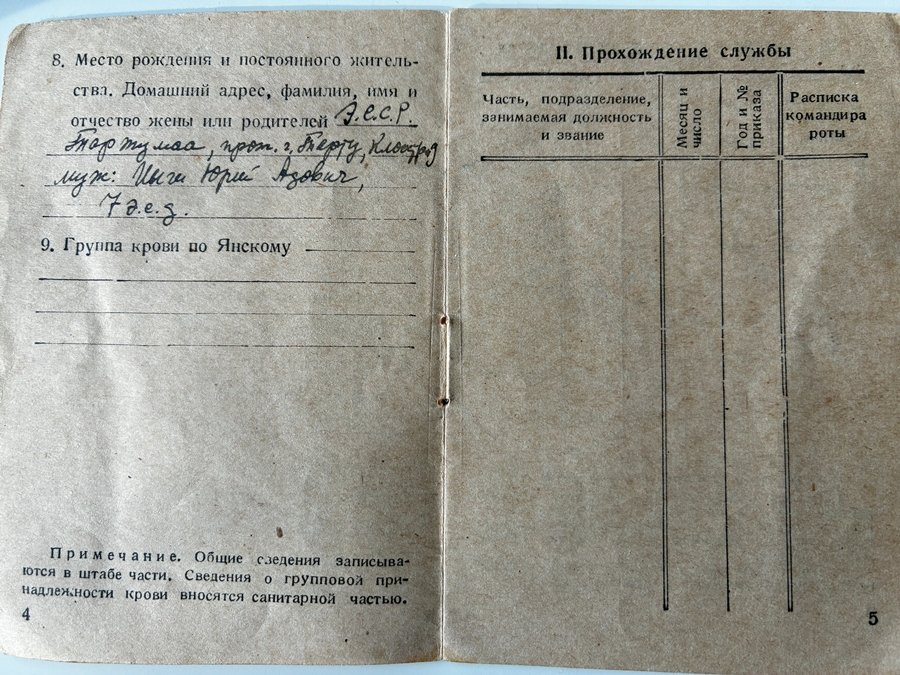 8. Место рождения и постоянного житель-
ства. Домашний адрес, фамилия, имя и
отчество жены или родителей Э.С.С.Р.
Тартумаа, прож. г. Тарту,
муж: Юрий
7
9. Группа крови по Янскому
Примечание. Общие сведения записыва-
ются в штабе части. Сведения о групповой при-
надлежности крови вносятся санитарной частью.
4
II. Прохождение службы
Часть, подразделение,
занимаемая должность
и звание
Месяц и
число
Год и №
приказа
Расписка
командира
роты
5